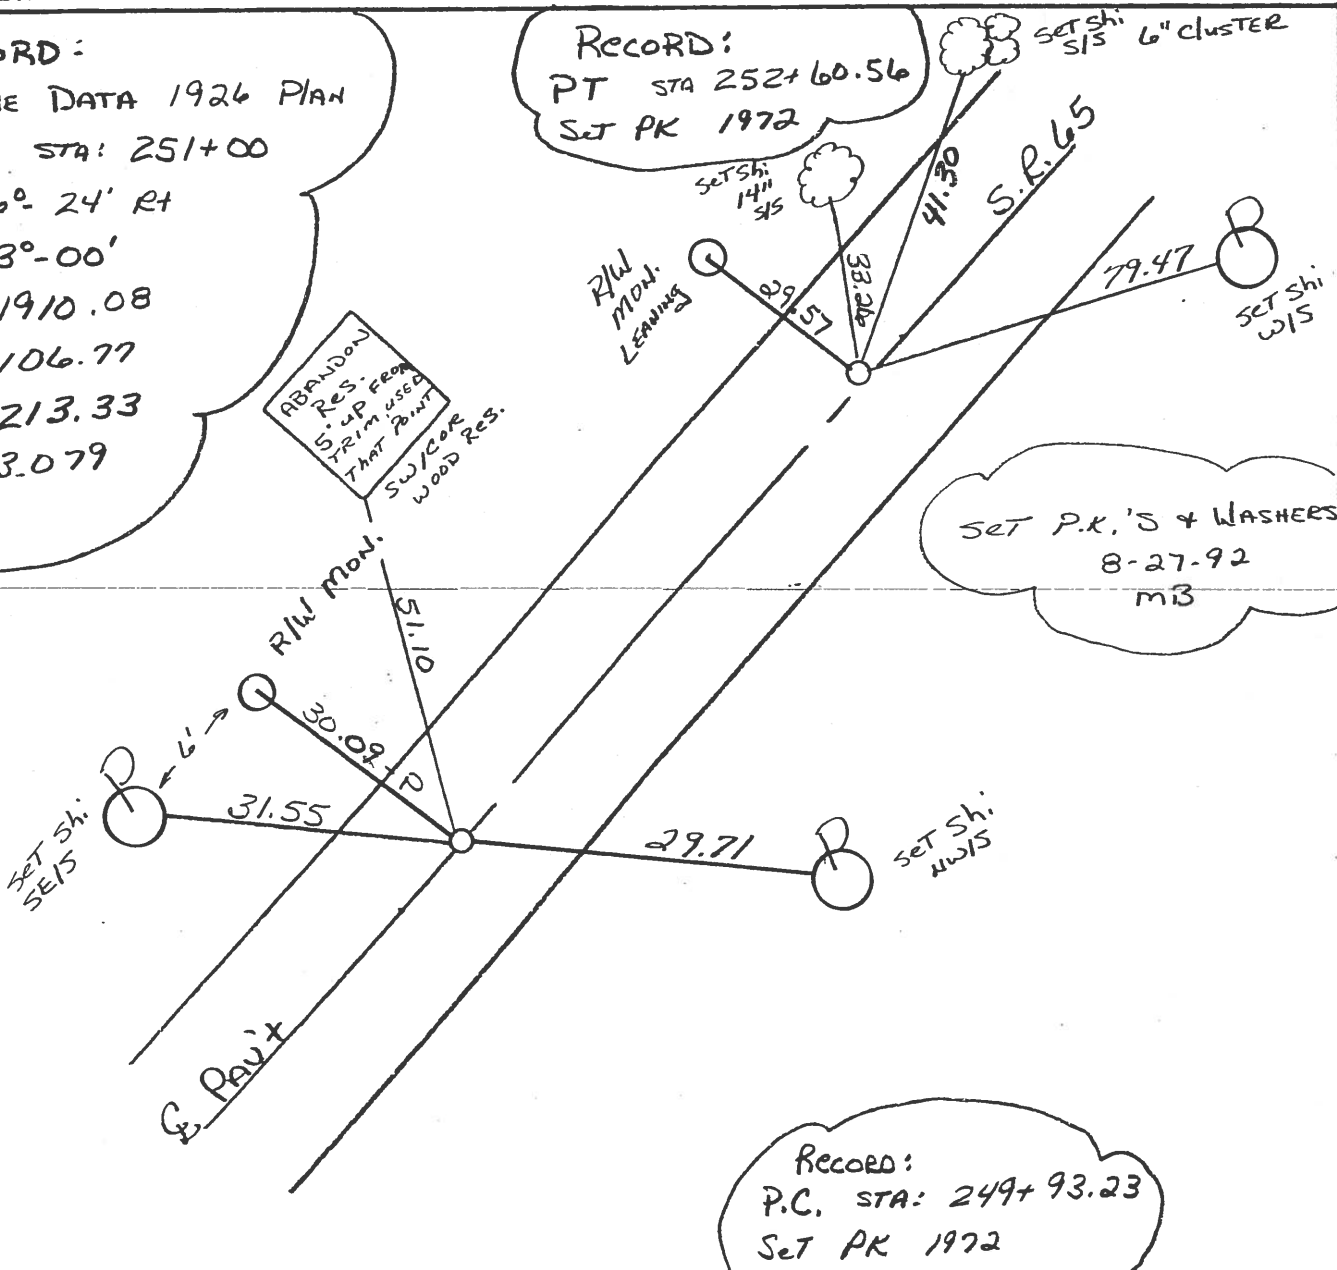 ORD:
E DATA 1926 PLAN
STA: 251+00
6°- 24' Rt
3°-00'
1910.08
106.77
213.33
3.079
RECORD:
PT STA 252+60.56
SET PK 1972
SET Shi
S/S 6" CLUSTER
SET Shi
14"
S/S
41.30
S.R. 65
33.26
R/W
MON.
LEANING
29.57
79.47
SET Shi
W/S
ABANDON
RES.
5' UP FROM
TRIM, USED
THAT POINT
SW/COR
WOOD RES.
SET P.K.'S & WASHERS
8-27-92
MB
R/W MON.
51.10
6'
30.09 ± P
31.55
SET Shi
SE/S
29.71
SET Shi
NW/S
℄ PAV'T
RECORD:
P.C. STA: 249+93.23
SET PK 1972